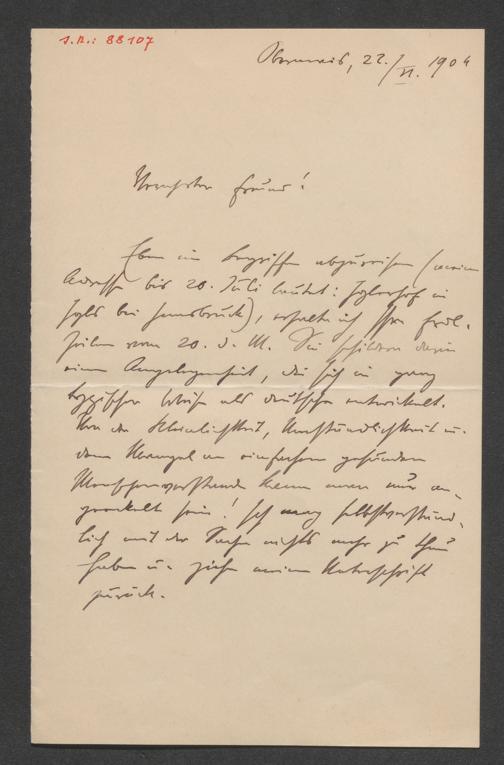 I.N.: 88107
22./VI. 1904
Verehrter Freund!
Eben im Begriffe abzureisen (meine
Adresse bis 20. Juli lautet: Iglerhof in
Igls bei Innsbruck), erhalte ich Ihre frdl.
Zeilen vom 20. d. M. Sie schildern darin
eine Angelegenheit, die sich in ganz
Weise als deutsche entwickelt.
Von der Kleinlichkeit, Umständlichkeit u.
dem Mangel an einfachem gesunden
Menschenverstande kann man nur an-
geekelt sein! Ich mag selbstverständ-
lich mit der Sache nichts mehr zu thun
haben u. ziehe meine Unterschrift
zurück.